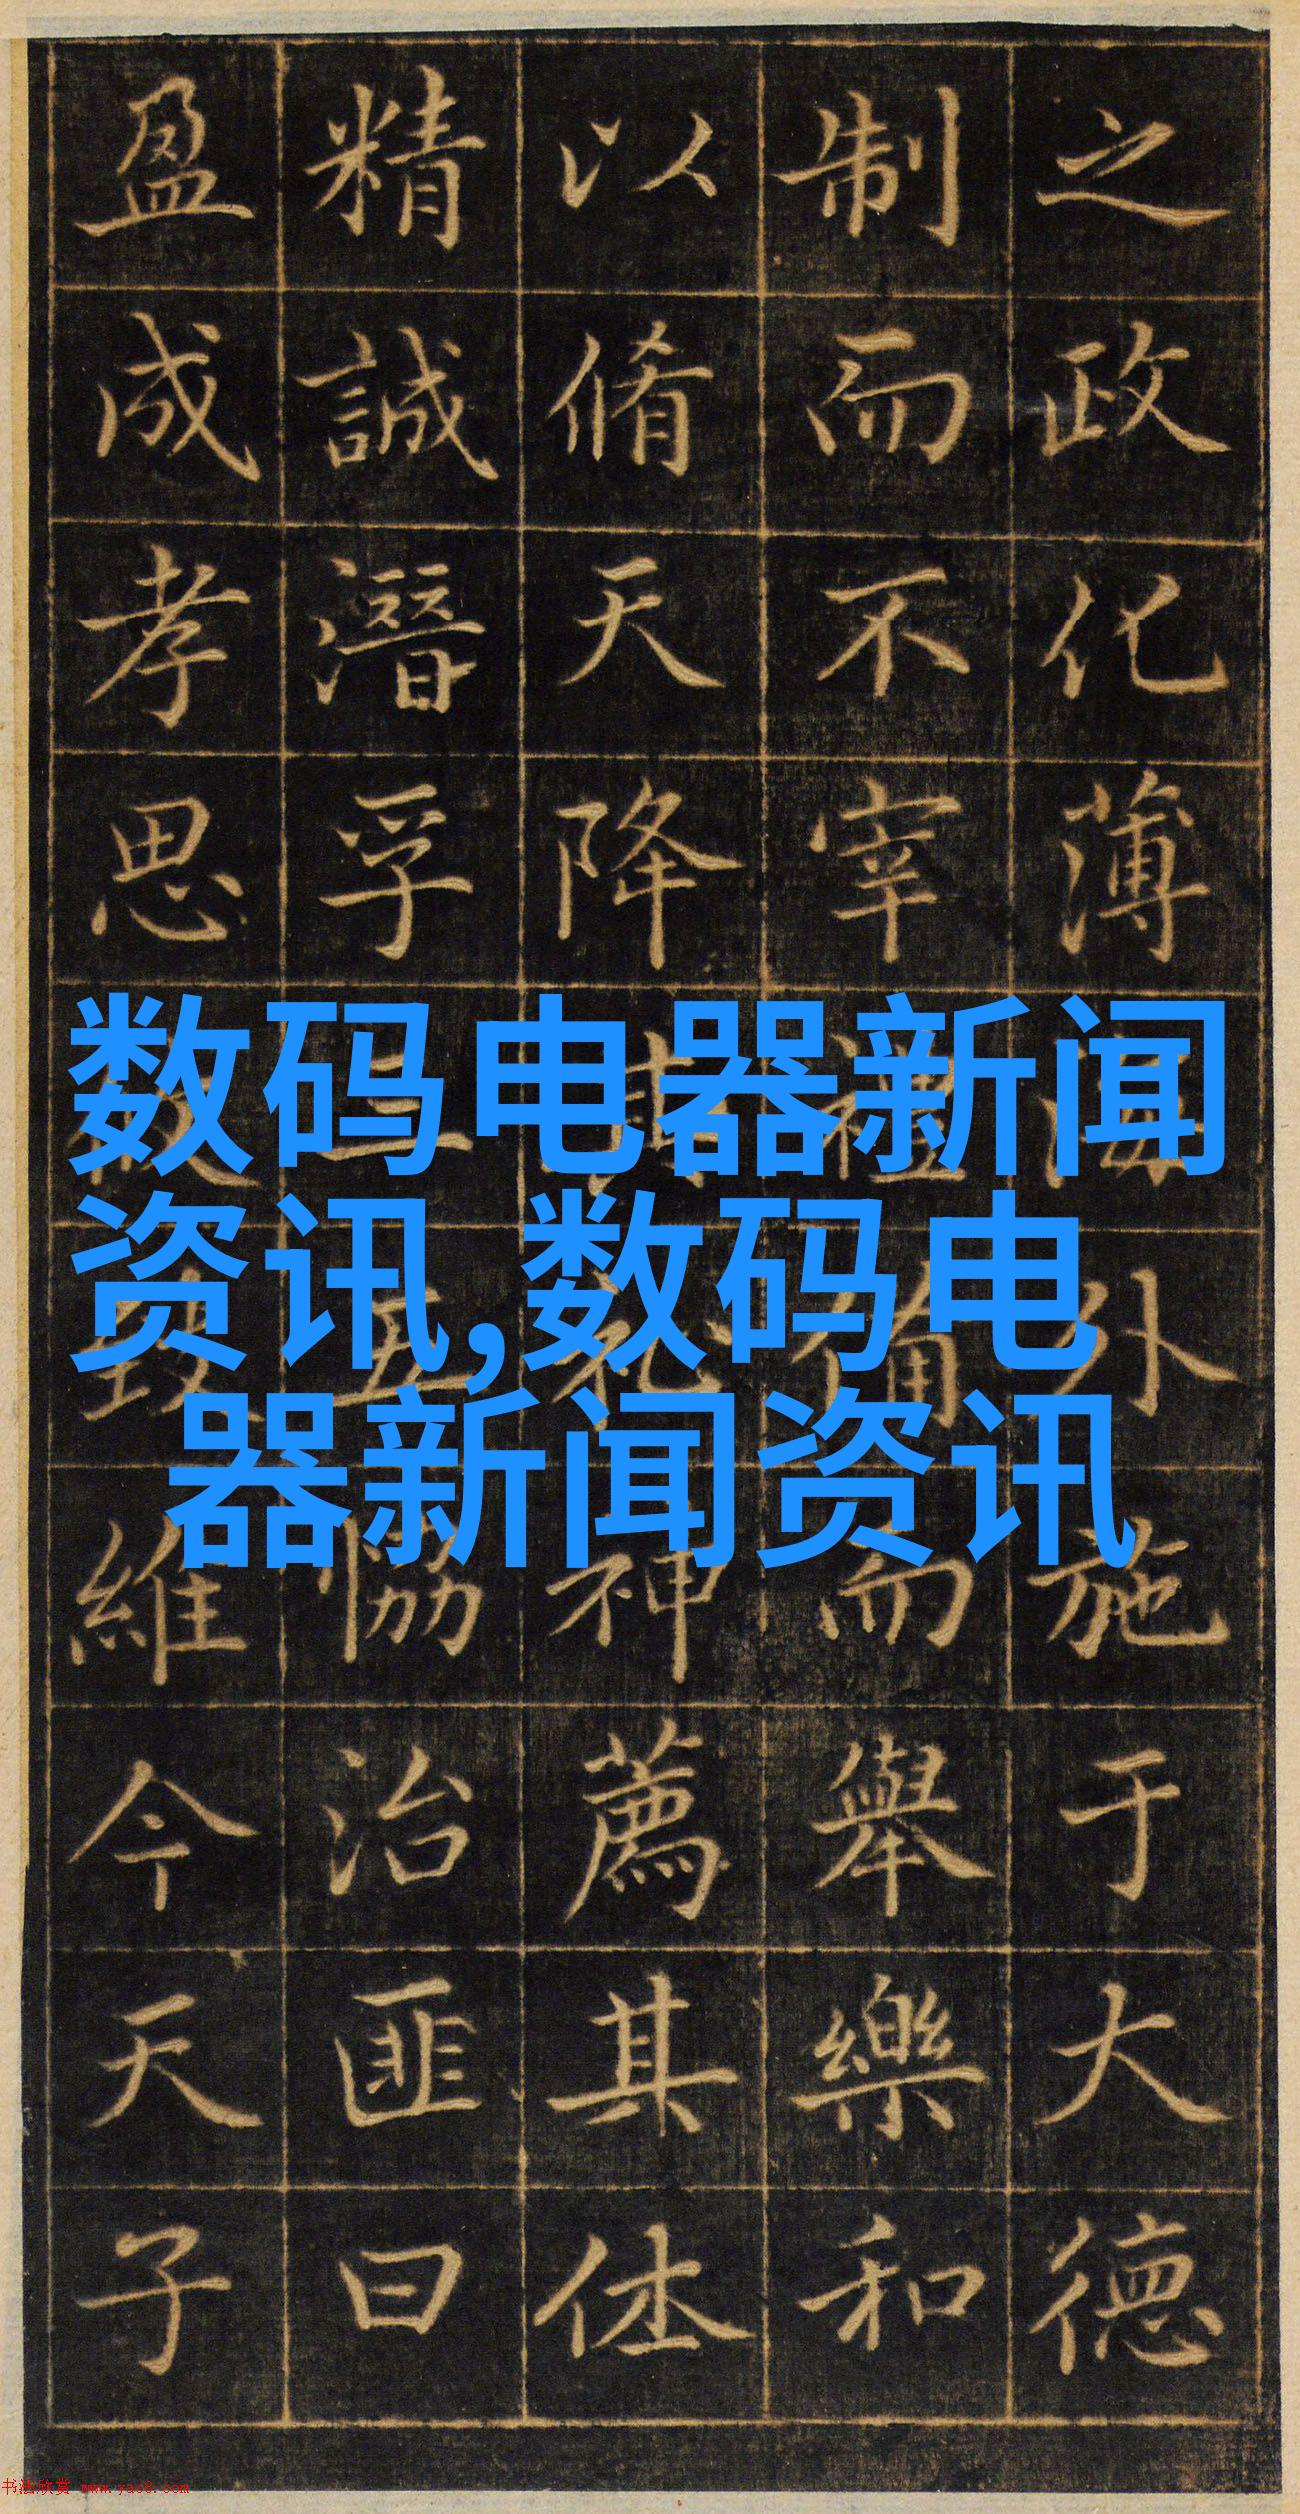 之政化薄海外施于大德
制而不宰禮備而舉樂和
以脩天降其神薦其休
精誠潛孚三五協治匪曰
盈成孝思維今天子
数码电器新闻
资讯,数码电
器新闻资讯
书法欣赏 www.yac8.com